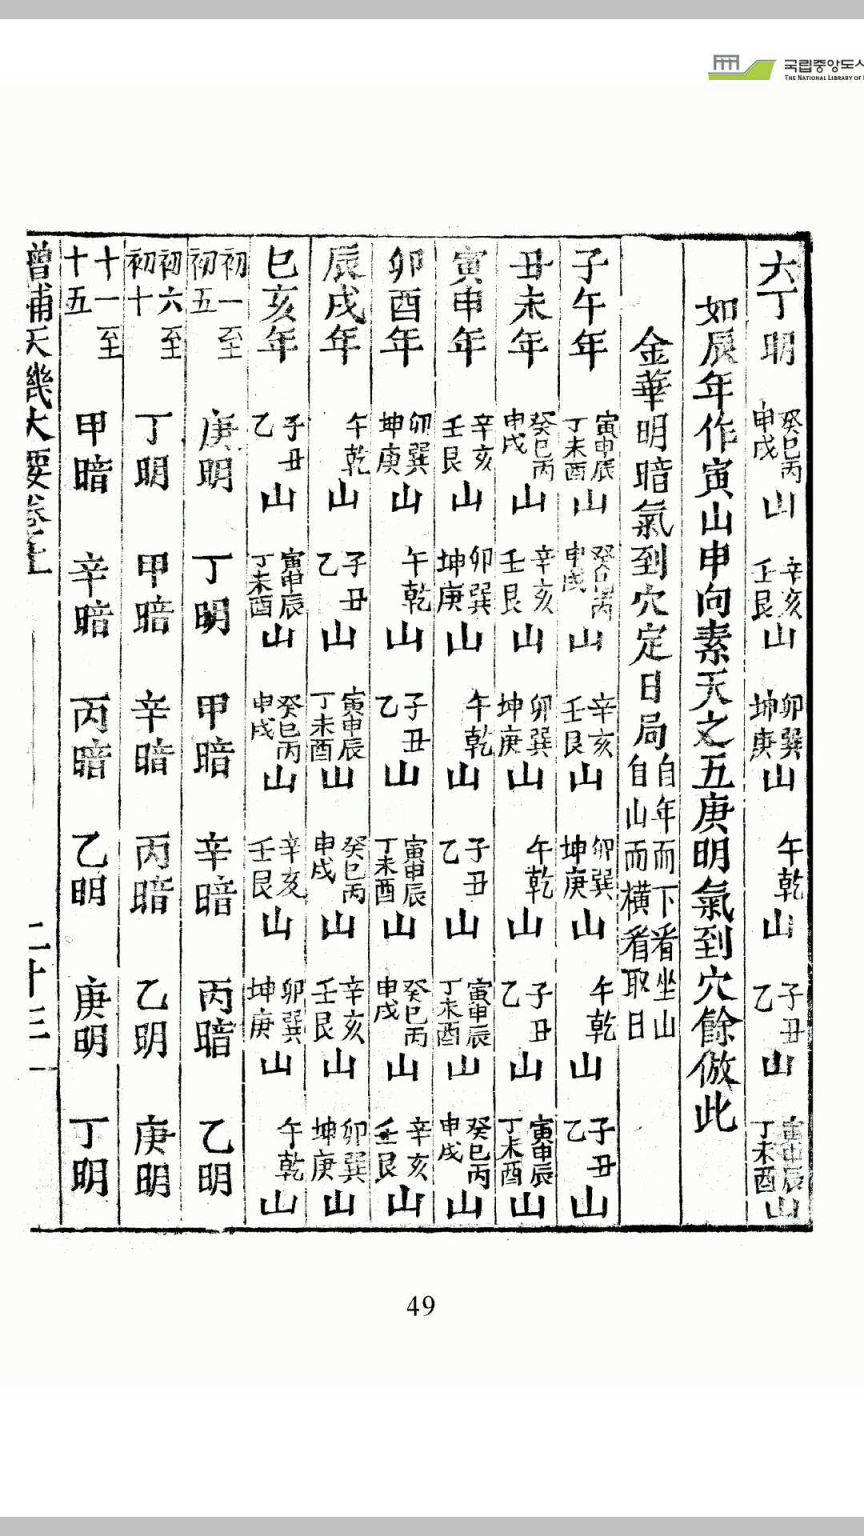 국립중앙도서
THE NATIONAL LIBRARY OF
六丁明 癸巳丙申戌山 辛亥壬艮山 卯巽坤庚山 午乾山 子丑乙山 寅申辰丁未酉山
如辰年作寅山申向素天之五庚明氣到穴餘倣此
金華明暗氣到穴定日局 自年而下看坐山自山而橫看取日
子午年 寅申辰丁未酉山 癸巳丙申戌山 辛亥壬艮山 卯巽坤庚山 午乾山 子丑乙山
丑未年 癸巳丙申戌山 辛亥壬艮山 卯巽坤庚山 午乾山 子丑乙山 寅申辰丁未酉山
寅申年 辛亥壬艮山 卯巽坤庚山 午乾山 子丑乙山 寅申辰丁未酉山 癸巳丙申戌山
卯酉年 卯巽坤庚山 午乾山 子丑乙山 寅申辰丁未酉山 癸巳丙申戌山 辛亥壬艮山
辰戌年 午乾山 子丑乙山 寅申辰丁未酉山 癸巳丙申戌山 辛亥壬艮山 卯巽坤庚山
巳亥年 子丑乙山 寅申辰丁未酉山 癸巳丙申戌山 辛亥壬艮山 卯巽坤庚山 午乾山
初一至初五 庚明 丁明 甲暗 辛暗 丙暗 乙明
初六至初十 丁明 甲暗 辛暗 丙暗 乙明 庚明
十一至十五 甲暗 辛暗 丙暗 乙明 庚明 丁明
增補天機大要卷之上 二十三
49